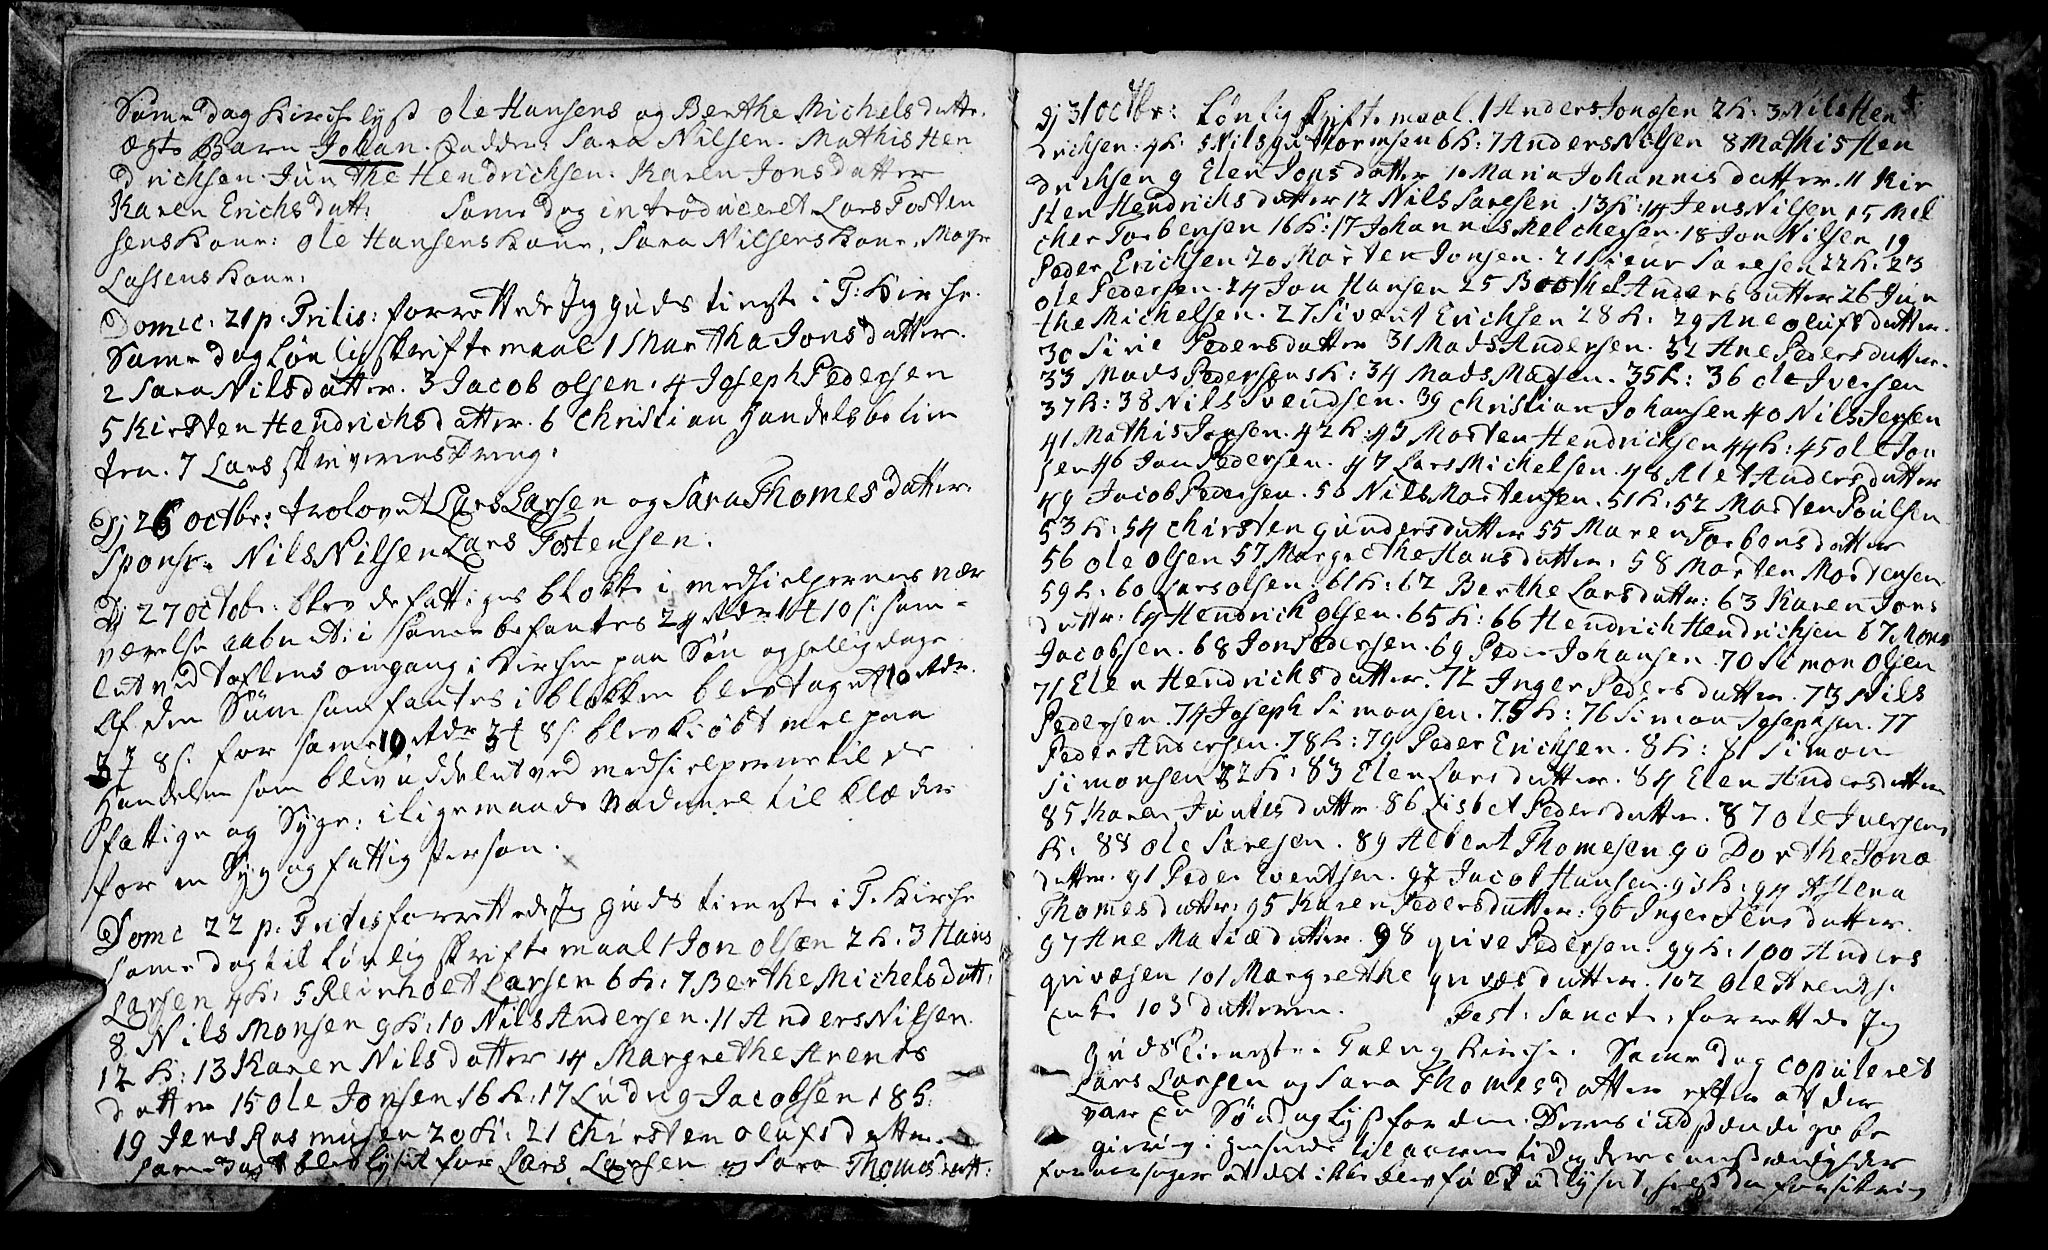 Same dag Kirchelyst Ole Hansens og Berthe Michels datt.
Ægte Barn Johan. Fadder Sara Nilsen. Mathis Hen
drichsen. Junthe Hendrichsen. Karen Jonsdatter
Karen Erichsdatt: Same dag introduceret Lars Tosten
sens Kone: Ole Hansens Kone, Sara Nilsens Kone,
Lassens Kone.
Domic: 21 p. Tritis: forrettede Jeg guds tieneste i T: Kirche.
Same dag Lønlig skriftemaal 1 Martha Jons datter.
2 Sara Nilsdatter. 3 Jacob Olsen. 4 Joseph Pedersen
5 Kirsten Hendrichsdatter. 6 Christian Handelsbetien
ten. 7 Lars skriverens dreng.
Dj 26 octbr: trolovet Lars Larsen og Sara Thomes datter.
Spons: Nils Nilsen Lars Tostensen.
Dj 27 octobr: blev de fattiges blokke i medhielpernes nær
værelse aabnet: i same befantes 24 Rdr 1 # 10 s: sam-
let ved taflens omgang i Kirchen paa Søn og hellig dage
Af den Sum som fantes i blokken blev taget 10 Rdr.
3 # 8 s. for same 10 Rdr 3 # 8 s. blev kiøbt mel paa
Handelen som blev uddelet ved medhielperne til de
fattige og Syge: iligemaade Vadmel til klæder
for en Syg og fattig Person.
Domc 22 p. Tritis forrettede Jeg guds tieneste i T. Kirche
same dag til lønlig skriftemaal 1 Jon Olsen 2 K. 3 Hans
Larsen 4 K: 5 Reinholt Larsen 6 K: 7 Berthe Michelsdatt:
8 Nils Monsen 9 K: 10 Nils Andersen. 11 Anders Nilsen.
12 K: 13 Karen Nilsdatter 14 Margrethe Arents
datter 15 Ole Jonsen 16 K: 17 Ludvg Jacobsen 18 K.
19 Jens Rasmusen 20 K: 21 Chirsten Olufsdatter.
same dag blev lyst for Lars Larsen og Sara Thomesdatt:
5.
Dj 31 octbr: Lønlig skriftemaal. 1 Anders Jonsen 2 K: 3 Nils Hen
drichsen: 4 K: 5 Nils guttormsen 6 K: 7 Anders Nilsen 8 Mathis Hen
drichsen 9 Elen Jonsdatter 10 Maria Johannisdatter. 11 Kir
sten Hendrichsdatter 12 Nils Saresen. 13 K: 14 Jens Nilsen 15 Mel
cher Torbensen 16 K: 17 Johannis Melchersen. 18 Jon Nilsen 19
Peder Erichsen. 20 Morten Jonsen. 21 Siver Saresen 22 K: 23
Ole Pedersen. 24 Jon Hansen 25 Barthel Anders datter 26 Jun
the Michelsen. 27 Sivent Erichsen 28 K: 29 Ane Olufsdatter.
30 Sirie Pedersdatter 31 Mads Andersen. 32 Ane Pedersdatter.
33 Mads Pedersens K: 34 Mads Madsen. 35 K: 36 Ole Iversen
37 K: 38 Nils Svendsen. 39 Christian Johansen 40 Nils Jensen
41 Mathis Jonsen. 42 K: 43 Morten Hendrichsen 44 K: 45 Ole Jon
sen 46 Jon Pedersen. 47 Lars Michelsen. 48 Alet Andersdatter
49 Jacob Pedersen. 50 Nils Mortensen. 51 K: 52 Morten Poulsen
53 K: 54 Chirsten gundersdatter 55 Maren Torbonsdatter
56 Ole Olsen 57 Margrethe Hansdatter. 58 Morten Mortensen
59 K: 60 Lars Olsen. 61 K: 62 Berthe Larsdatter. 63 Karen Jons
datter. 64 Hendrich Olsen. 65 K: 66 Hendrich Hendrichsen 67 Mons
Jacobsen. 68 Jon Pedersen. 69 Peder Johansen. 70 Simon Olsen
71 Elen Hendrichsdatter. 72 Inger Pedersdatter. 73 Nils
Pedersen. 74 Joseph Simonsen. 75 K: 76 Simon Josephsen. 77
Peder Andersen. 78 K: 79 Peder Erichsen. 8 K: 81 Simon
Simonsen 82 K: 83 Elen Larsdatter. 84 Elen Andersdatter
85 Karen Juntesdatter. 86 Lisbet Pedersdatter. 87 Ole Iversens
K: 88 Ole Saresen. 89 Albert Thomesen 90 Dorthe Jons
datter. 91 Peder Eventsen. 92 Jacob Hansen. 93 K: 94 Aslena
Thomesdatter. 95 Karen Pedersdatter: 96 Inger Jensdatter.
97 Ane Mariædatter. 98 quive Pedersen: 99 K: 100 Anders
qvivæsen 101 Margrethe qvivæsdatter. 102 Ole Arentss.
Enke 103 datteren. Fest: Sanct: forrettede Jeg
guds Tieneste i Talvg Kirche. Same dag copuleret
Lars Larsen og Sara Thomesdatter efter at der
var En Søndag lyst for dem. Deres indstendige be
giering i henseende til aarens tid og deres
foraarsager at det ikke blev fuldt udlyset,